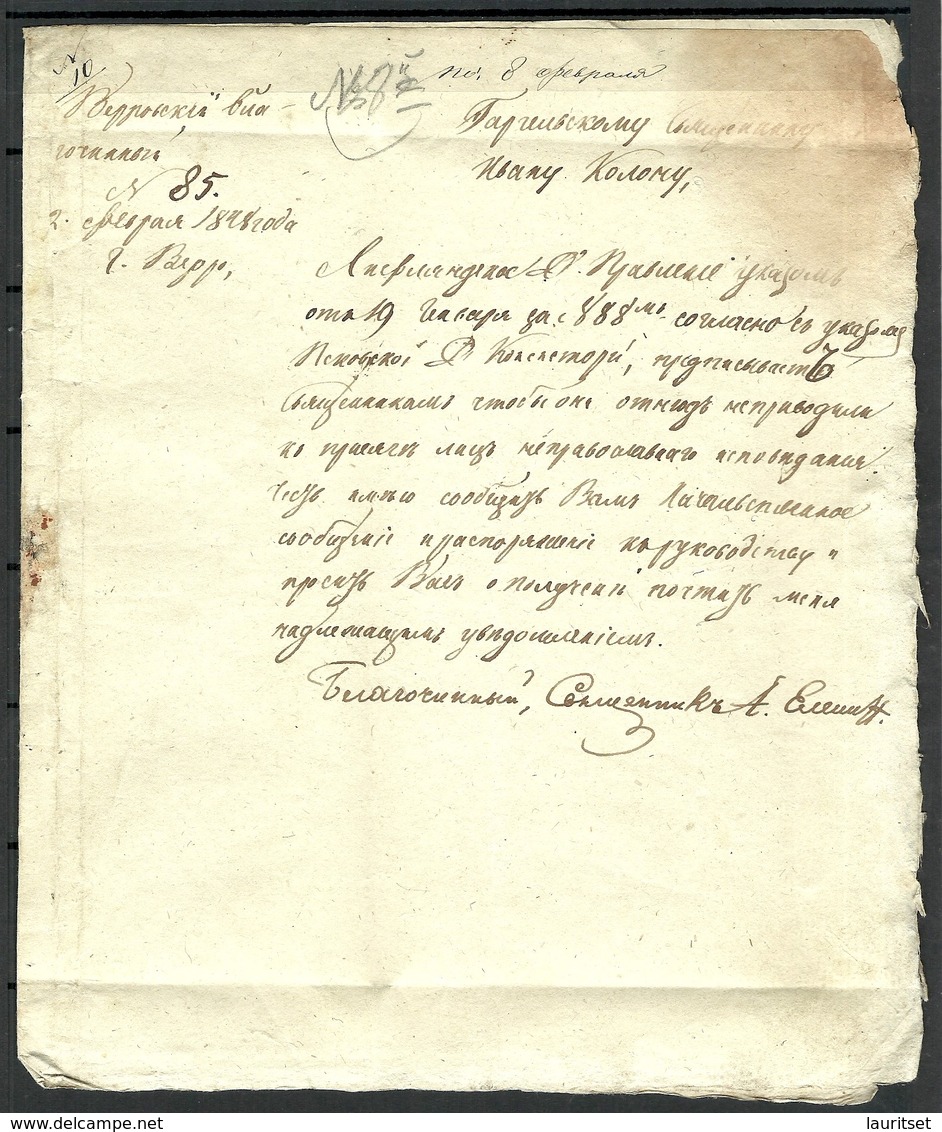 N 10
Верровскій Бла-
гочинный
N 85.
2. Февраля 1848 года
г. Верр,
№ 8й
пол. 8 февраля
Гаргельскому Священнику
Ивану Колону,
Лифляндское Д. Правленіе указомъ
отъ 19 Генваря за № 88мъ согласно съ указомъ
Псковской Д Консисторіи, предписываетъ
Священникамъ чтобы они отнюдь неприводили
къ присягѣ лицъ неправославнаго исповѣданія.
Честь имѣю сообщить Вамъ Начальственное
сообщеніе и распоряженіе къ руководству и
просить Васъ о полученіи почтить меня
надлежащимъ увѣдомленіемъ.
Благочинный, Священникъ А.
lauritset